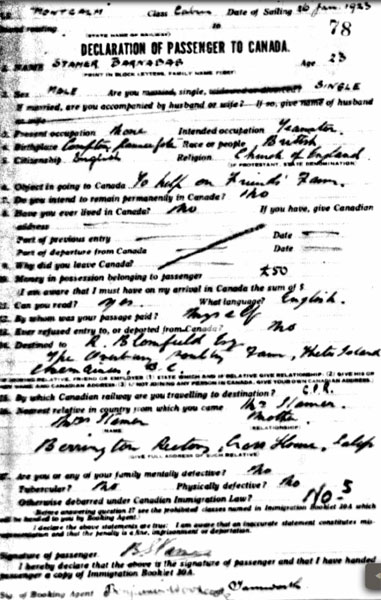 S.S. "MONTCALM" Class Cabin Date of Sailing 26 Jan. 1923
to
(STATE NAME OF RAILWAY)
78
DECLARATION OF PASSENGER TO CANADA.
1. NAME STAMER BARNABAS Age 23
(PRINT IN BLOCK LETTERS, FAMILY NAME FIRST)
2. Sex MALE Are you married, single, widowed or divorced? SINGLE
If married, are you accompanied by husband or wife? If so, give name of husband
or wife
3. Present occupation None Intended occupation
4. Birthplace Race or people British
5. Citizenship English Religion Church of England
IF PROTESTANT, STATE DENOMINATION
6. Object in going to Canada To help on Friends' Farm.
7. Do you intend to remain permanently in Canada? No
8. Have you ever lived in Canada? No If you have, give Canadian
address
Port of previous entry Date
Port of departure from Canada Date
9. Why did you leave Canada?
10. Money in possession belonging to passenger £50
I am aware that I must have on my arrival in Canada the sum of $
11. Can you read? Yes. What language? English.
12. By whom was your passage paid? Myself
13. Ever refused entry to, or deported from Canada? No
14. Destined to R. Blomfield Esq
Farm, Island
B.C.
15. By which Canadian railway are you travelling to destination? C.P.R.
16. Nearest relative in country from which you came Mrs Stamer
Mrs Stamer Mother
NAME RELATIONSHIP
Berrington Rectory, Cross Houses, Salop
GIVE FULL ADDRESS OF SUCH RELATIVE
17. Are you or any of your family mentally defective? No
Tubercular? No Physically defective? No
Otherwise debarred under Canadian Immigration Law? No
Before answering question 17 see the prohibited classes named in Immigration Booklet 30A which
will be handed to you by Booking Agent.
I declare the above statements are true: I am aware that an inaccurate statement constitutes mis-
representation and that the penalty is a fine, imprisonment or deportation.
Signature of passenger B. Stamer
I hereby declare that the above is the signature of passenger and that I have handed
passenger a copy of Immigration Booklet 30A.
Sig. of Booking Agent Tamworth